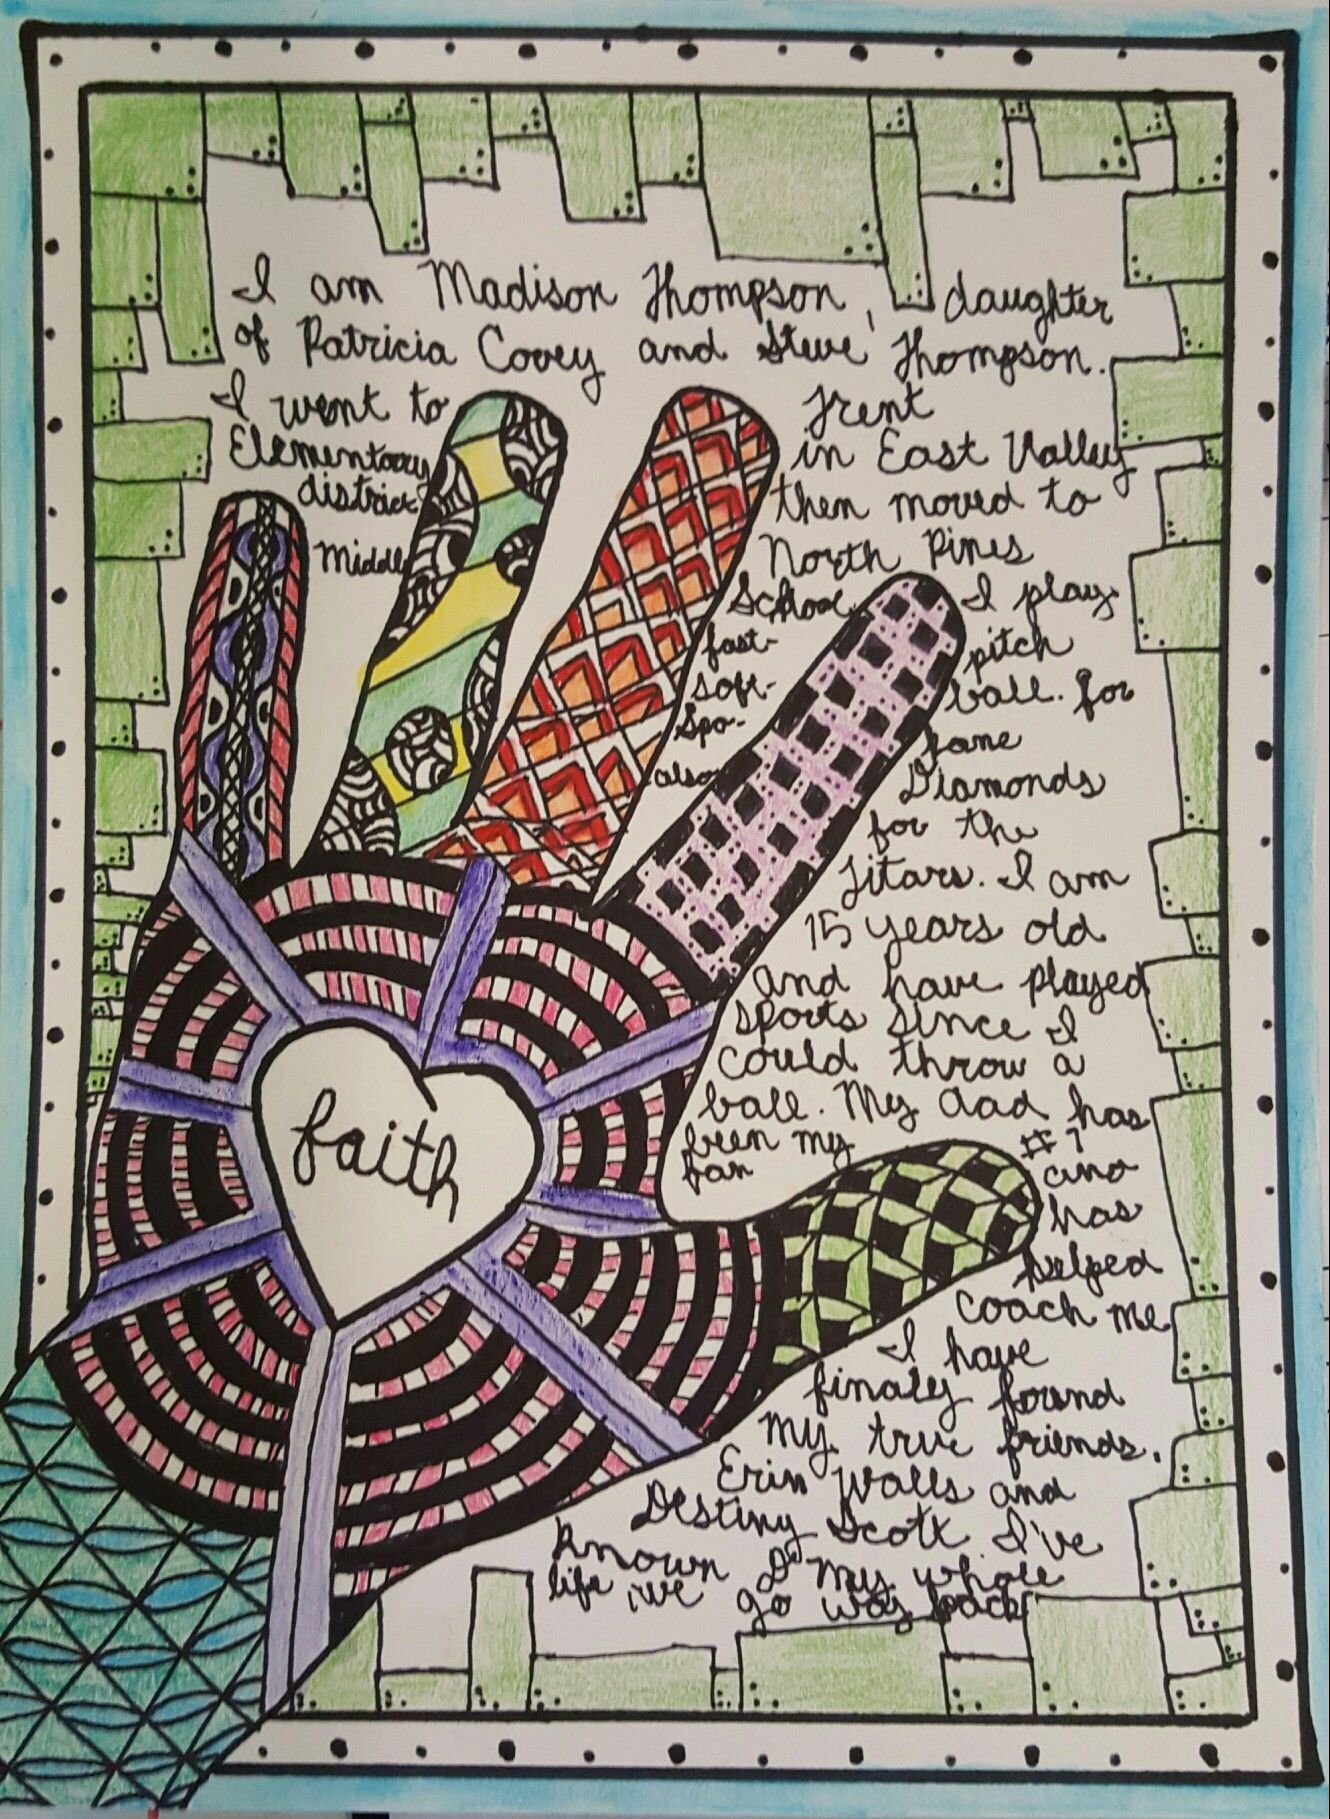 I am Madison Thompson, daughter
of Patricia Covey and Steve Thompson.
I went to Trent
Elementary in East Valley
district then moved to
North Pines
Middle School I play
fast- pitch
soft- ball. for
Spo- kane
also Diamonds
for the
Titans. I am
15 years old
and have played
sports since I
could throw a
ball. My dad has
been my #1
fan and
has
helped
coach me
I have
finaly found
my true friends.
Erin Walls and
Destiny Scott I've
known D my whole
life ive go way back
faith